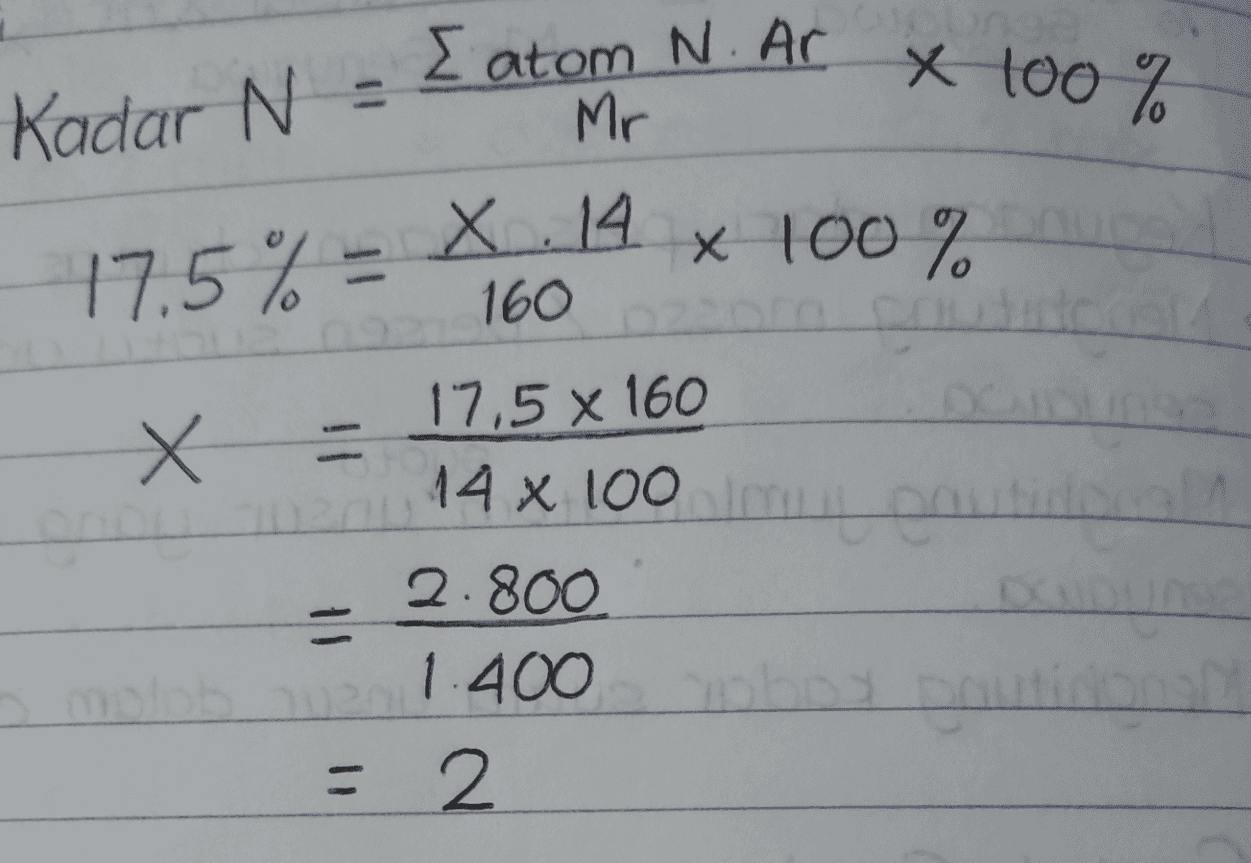 Kadar N = Σ atom N . Ar / Mr x 100 %
17.5 % = X . 14 / 160 x 100 %
X = 17,5 x 160 / 14 x 100
= 2.800 / 1.400
= 2